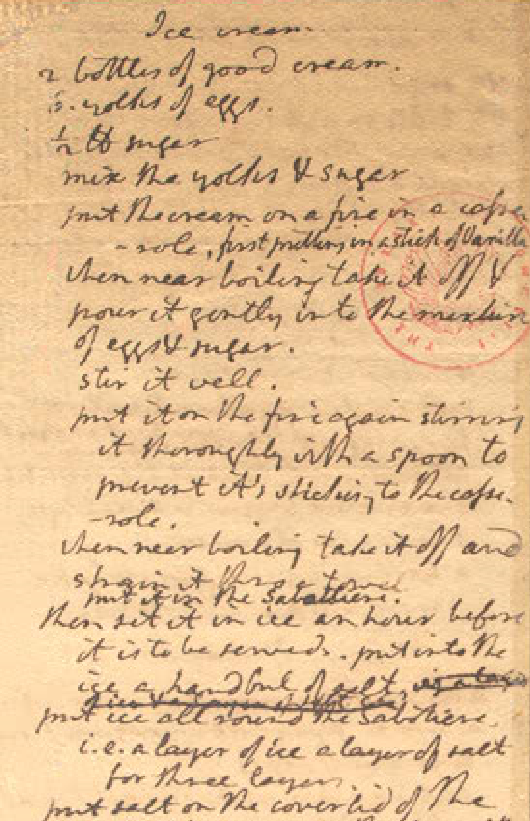 Ice cream.
2. bottles of good cream.
6. yolks of eggs.
½ lb sugar
mix the yolks & sugar
put the cream on a fire in a casse-
-role, first putting in a stick of Vanilla.
when near boiling take it off &
pour it gently into the mixture
of eggs & sugar.
stir it well.
put it on the fire again stirring
it thoroughly with a spoon to
prevent it's sticking to the casse-
-role.
when near boiling take it off and
strain it thro' a towel.
put it in the Sabottiere.
then set it in ice an hour before
it is to be served. put into the
ice a handful of salt.
put ice all round the Sabotiere
i.e. a layer of ice a layer of salt
for three layers.
put salt on the coverlid of the